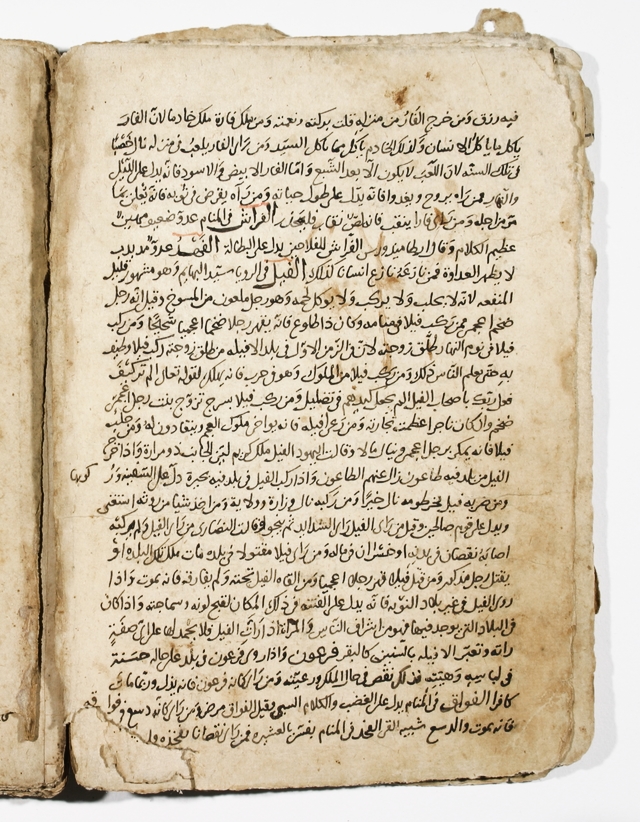 فيه رزق ومن خرج الفار من منزله قلت بركته ونعمته ومن ملك فارة ملك خادما لان الفار
ياكل مما ياكل الانسان وكذلك الخادم ياكل مما ياكل السيد ومن راى الفار يلعب في منزله نال خصبا
في تلك السنة لان اللعب لا يكون الا بعد الشبع واما الفار الابيض والاسود فانه يدل على الليل
والنهار فمن راه يروح ويغدوا فانه يدل على طول حياته ومن راه يقرض في ثوبه فانه يعلن بما
مر من اجله ومن راى فارا ينقب فانه لص نقاب فليحذر الفراش في المنام عدو ضعيف مهين
عظيم الكلام وقال ارطاميدورس الفراش للفلاحين يدل على البطالة الفهد عدو مذبذب
لا يظهر العداوة فمن نازعه نازع انسانا كذلك الفيل في الرويا سيد البهايم وهو مشهور قليل
المنفعه لانه لا يحلب ولا يركب ولا يوكل لحمه وهو رجل ملعون من المسوخ وقيل انه رجل
ضخم اعجمي فمن ركب فيلا في منامه وكان ذا طاوع فانه يقهر رجلا ضخما اعجميا شحيحا ومن ركب
فيلا في نوم النهار طلق زوجته لان في الزمن الاول في بلد الافيله من طلق زوجته ركب فيلا وطيف
به حتى يعلم الناس ذلك ومن ركب فيلا من الملوك وهو في حرب فانه يهلك لقوله تعالى الم تر كيف
فعل ربك باصحاب الفيل الم يجعل كيدهم في تضليل ومن ركب فيلا بسرج تزوج بنت رجل اعجمي
ضخم وان كان تاجرا عظمت تجارته ومن رعى افيلة فانه يواخي ملوك العجم وينقادون له ومن حلب
فيلا فانه يمكر برجل اعجمي وينال مالا وقالت اليهود الفيل ملك كريم لين الجانب ذو مدارة واذا خرج
الفيل من بلد فيه طاعون زال عنهم الطاعون واذا ركب الفيل في بلد فيه بحيرة دل على السفينة و
ركوبها
ومن ضربه فيل بخرطومه نال خيرا ومن ركبه نال وزارة وولاية ومن اخذ شيا من روثه استغنى
ويدل على قوم صالحين وقيل من راى الفيل راى الشدايد ثم ينجو وقالت النصارى من راى الفيل ولم يركبه
اصابه نقصان في بدنه او خسران في ماله ومن راى فيلا مقتولا في بلده مات ملك تلك البلده او
يقتل رجل مذكر ومن قتل فيلا قهر رجلا اعجميا ومن القاه الفيل تحته ولم يفارقه فانه يموت واذا
روى الفيل في غير بلاد النوبه فانه يدل على الفتنه في ذلك المكان لقبح لونه وسماجته واذا كان
في البلاد التي يوجد فيها فهو من اشراف الناس والمراة اذا رات الفيل فلا يحمد لها على اي صفة
راته وتعبر الافيله بالسنين كالبقر فرعون واذا روى فرعون في بلد على حاله حسنة
في لباسه وهيئته فذلك نقص في حال الملك ورعيته ومن راى كانه فرعون فانه يذل وربما مات
كافرا الفواق في المنام يدل على الغضب والكلام السيئ وقيل الفواق مرض ومن راى كانه
فانه يموت شبيه الفخذ في المنام يفسر بالعشيره فمن راى نقصانا بفخذه